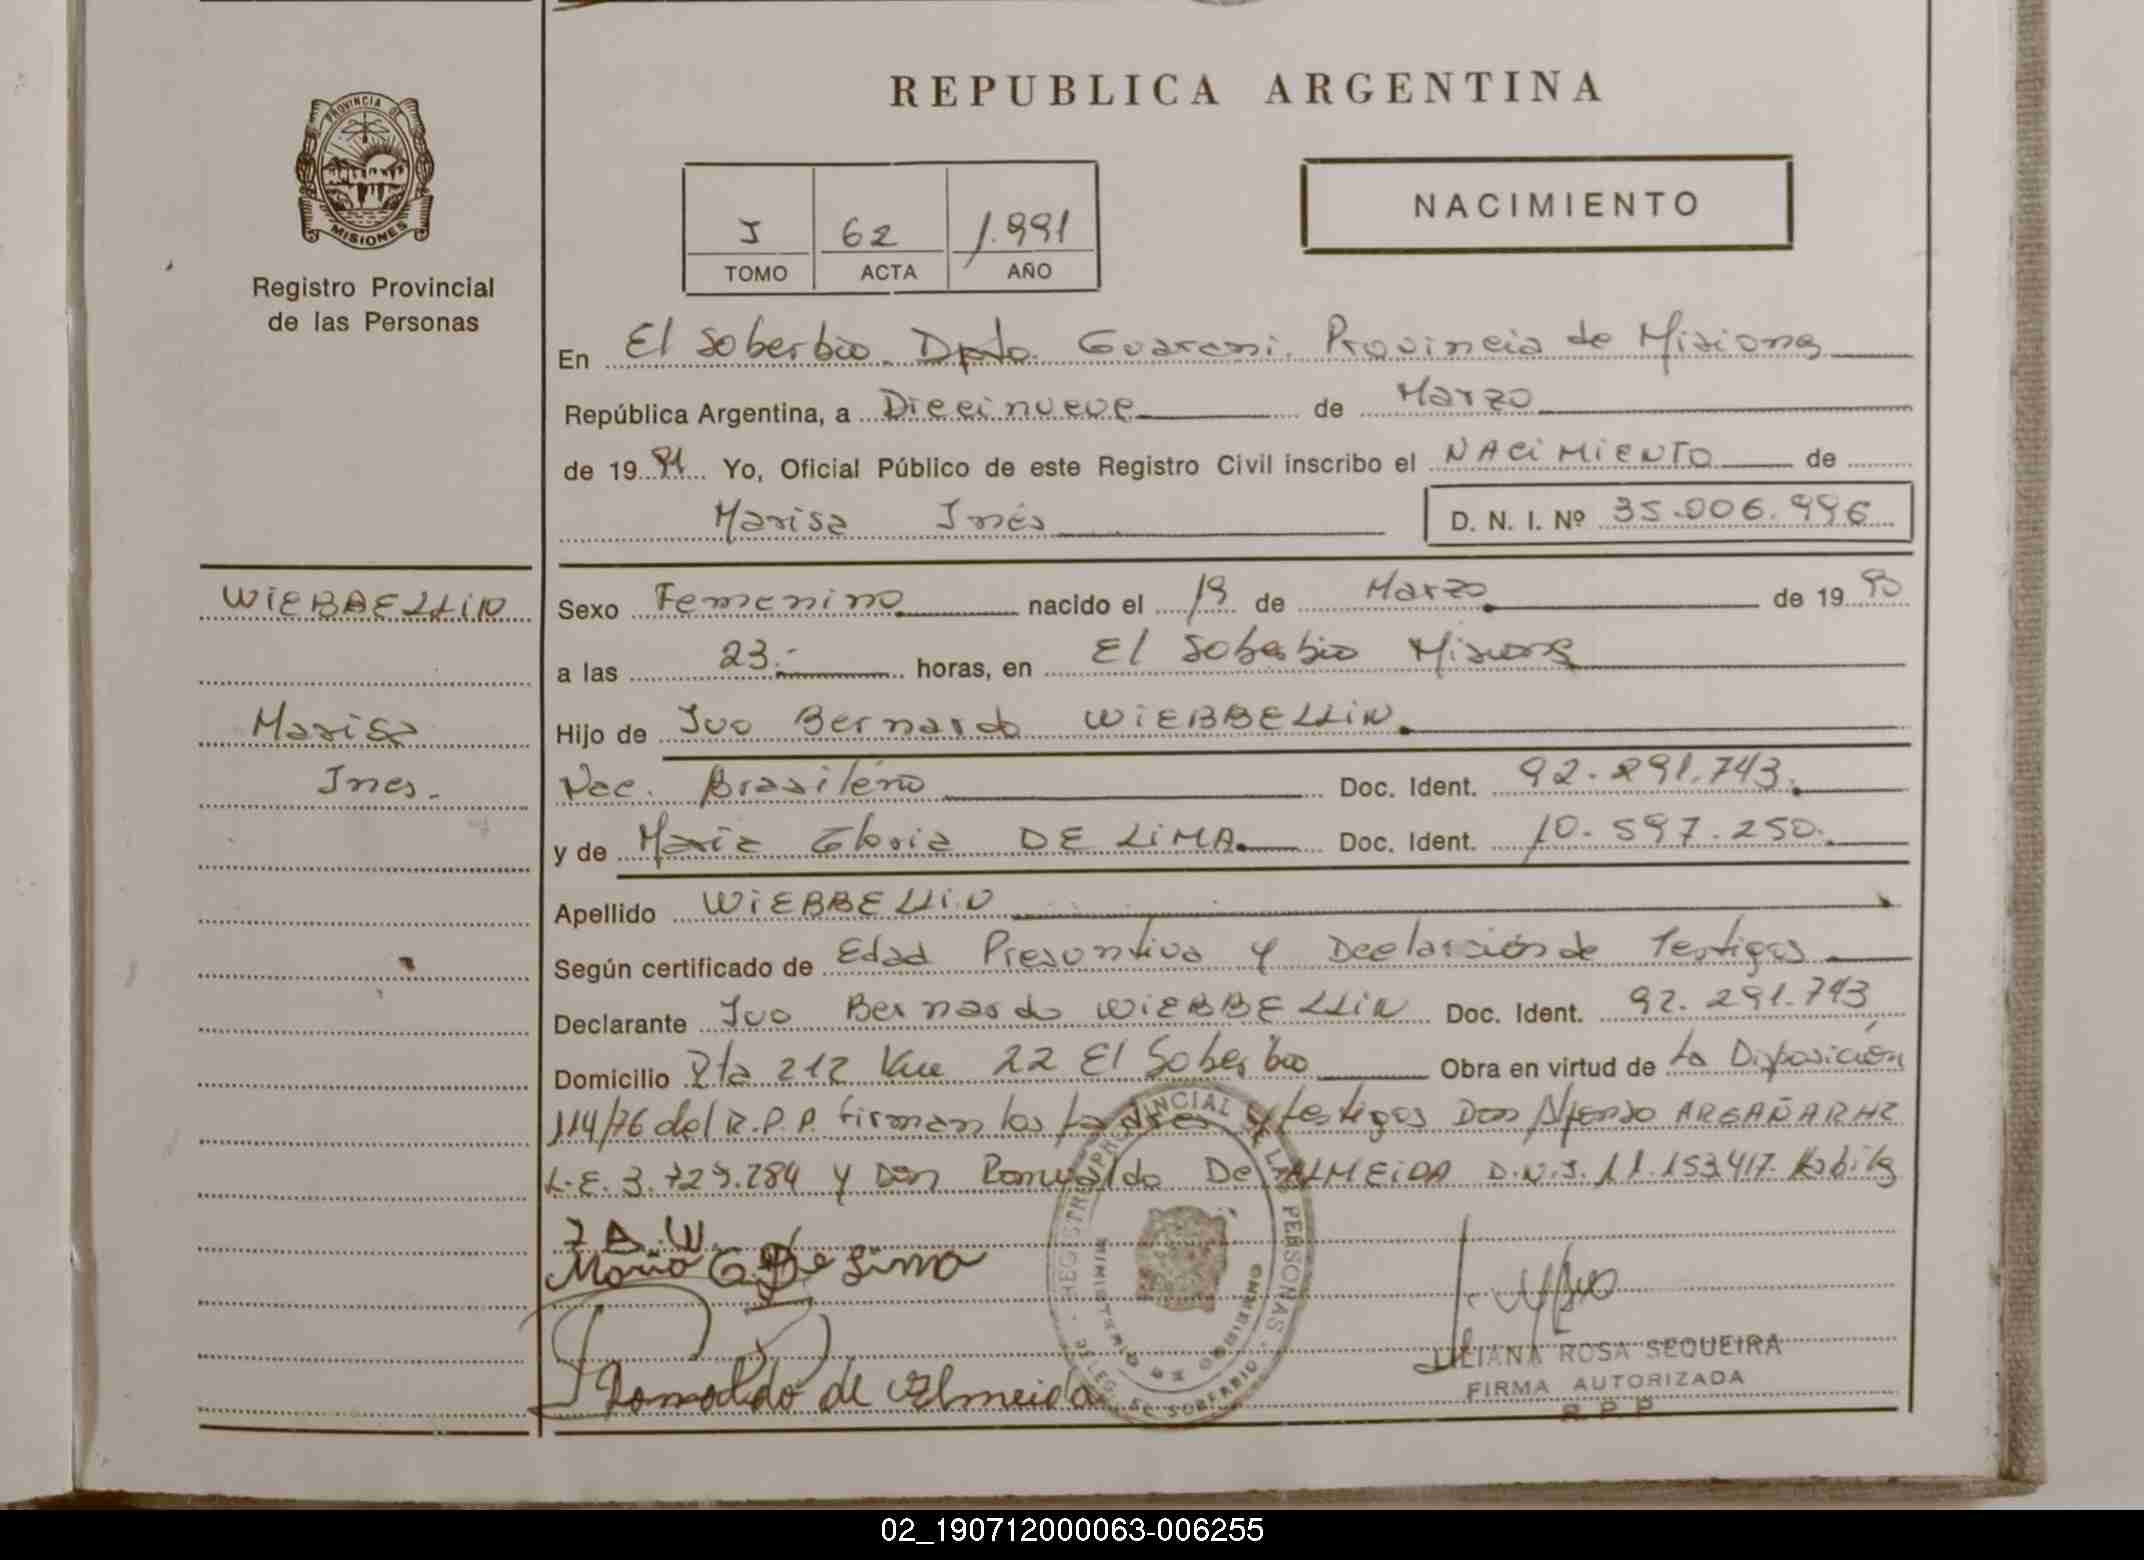 REPUBLICA ARGENTINA
PROVINCIA DE
MISIONES
Registro Provincial
de las Personas
I 62 1.991
TOMO ACTA AÑO
NACIMIENTO
En El Soberbio Dpto. Guarani. Provincia de Misiones
República Argentina, a Diecinueve de Marzo
de 1991 Yo, Oficial Público de este Registro Civil inscribo el NACIMIENTO de
Marisa Inés D. N. I. Nº 35.006.996
WIEBBELLIN
Marisa
Ines.
Sexo Femenino nacido el 19 de Marzo de 1990
a las 23.- horas, en El Soberbio Misiones
Hijo de Ivo Bernardo WIEBBELLIN
Nac. Brasileño Doc. Ident. 92.291.743.
y de Maria Gloria DE LIMA Doc. Ident. 10.597.250.
Apellido WIEBBELLIN
Según certificado de Edad Presuntiva y Declaración de Testigos
Declarante Ivo Bernardo WIEBBELLIN Doc. Ident. 92.291.743
Domicilio Rta 212 Km 22 El Soberbio Obra en virtud de La Disposición
114/76 del R.P.P. firman los padres y testigos Don Alfonso ARGAÑARHZ
L.E. 3.729.284 y Don Romualdo De ALMEIDA D.N.I. 11.153.417. Habiles
I B. W.
Maria G De Lima
Romaldo de Almeida
REGISTRO PROVINCIAL DE LAS PERSONAS
MINISTERIO DE GOBIERNO
LILIANA ROSA SEQUEIRA
FIRMA AUTORIZADA
R P P
02_190712000063-006255